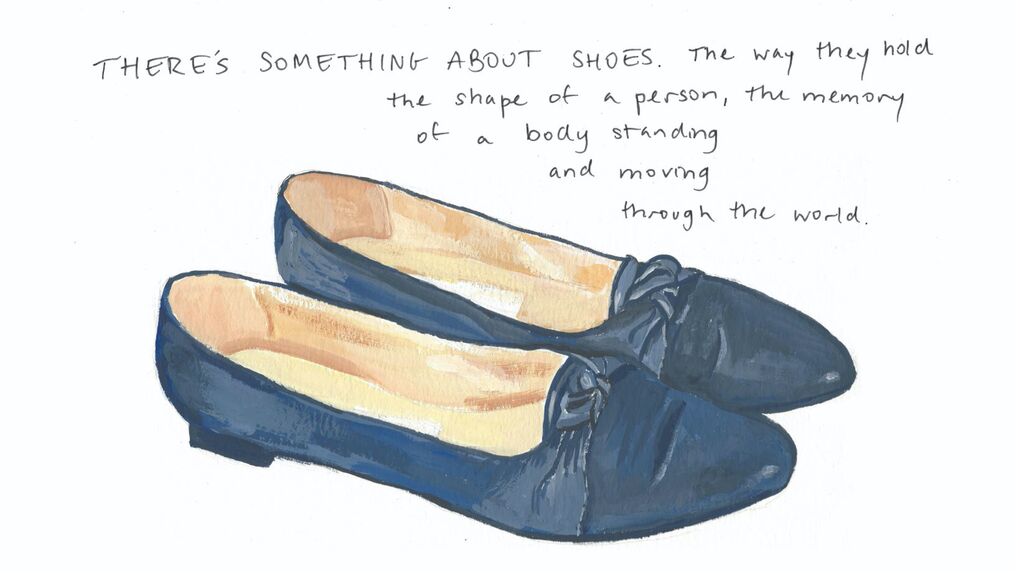 THERE'S SOMETHING ABOUT SHOES. The way they hold
the shape of a person, the memory
of a body standing
and moving
through the world.